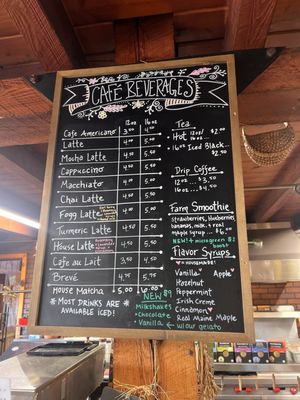 CAFÉ BEVERAGES
12 oz 16 oz
Café Americano 3.50 4.50
Latte 4.50 5.50
Mocha Latte 4.50 5.50
Cappuccino 4.50 5.50
Macchiato 4.50 5.50
Chai Latte 4.50 5.50
Fogg Latte 4.50 5.50
Turmeric Latte 4.50 5.50
House Latte 4.50 5.50
Café au Lait 3.50 4.50
Brevé 4.75 5.75
House Matcha 5.00 6.00
*MOST DRINKS ARE
AVAILABLE ICED!
NEW $9
Milkshakes
• Chocolate
• Vanilla w/ Wow gelato
Tea
• Hot 12oz/16oz $2.00
• 16oz Iced Black..
$2.50
Drip Coffee
12oz ... $3.50
16oz ... $4.50
Farm Smoothie
strawberries, blueberries,
bananas, milk, & real
maple syrup ~ $6.00
NEW! + microgreens $2
Flavor Syrups
♥ = HOUSEMADE!
Vanilla♥ Apple♥
Hazelnut
Peppermint
Irish Creme
Cinnamon♥
Real Maine Maple